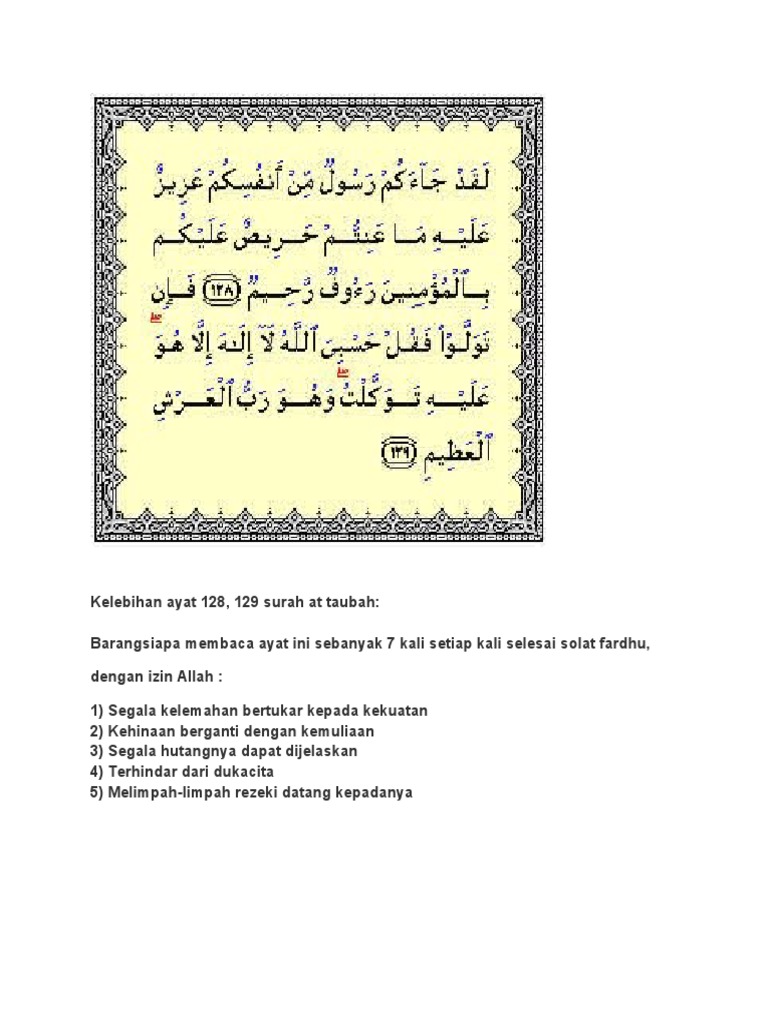 لَقَدْ جَآءَكُمْ رَسُولٌ مِّنْ أَنفُسِكُمْ عَزِيزٌ
عَلَيْهِ مَا عَنِتُّمْ حَرِيصٌ عَلَيْكُم
بِٱلْمُؤْمِنِينَ رَءُوفٌ رَّحِيمٌ ١٢٨ فَإِن
تَوَلَّوْا۟ فَقُلْ حَسْبِىَ ٱللَّهُ لَآ إِلَٰهَ إِلَّا هُوَ ۖ
عَلَيْهِ تَوَكَّلْتُ ۖ وَهُوَ رَبُّ ٱلْعَرْشِ
ٱلْعَظِيمِ ١٢٩
Kelebihan ayat 128, 129 surah at taubah:
Barangsiapa membaca ayat ini sebanyak 7 kali setiap kali selesai solat fardhu,
dengan izin Allah :
1) Segala kelemahan bertukar kepada kekuatan
2) Kehinaan berganti dengan kemuliaan
3) Segala hutangnya dapat dijelaskan
4) Terhindar dari dukacita
5) Melimpah-limpah rezeki datang kepadanya